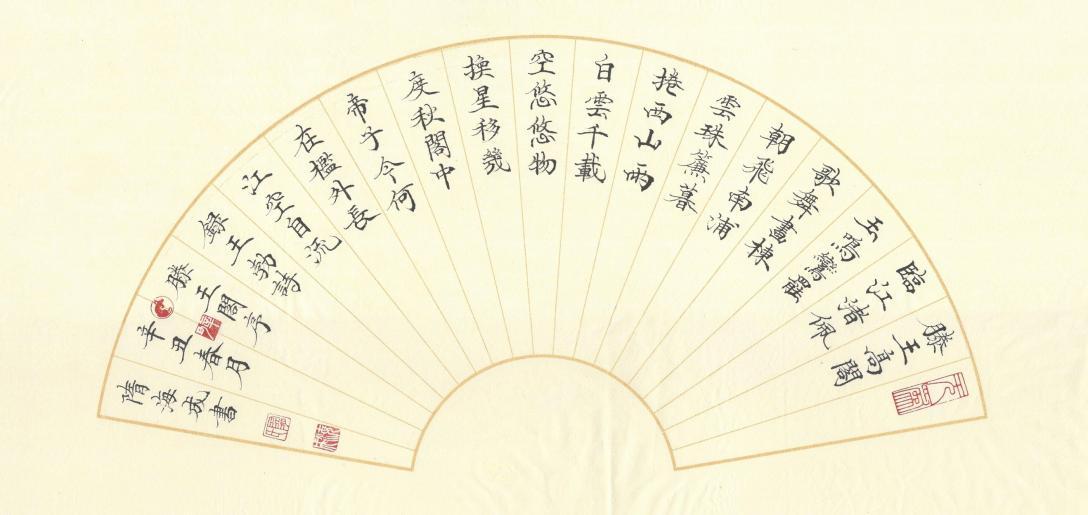 滕王高閣
臨江渚佩
玉鳴鸞罷
歌舞畫棟
朝飛南浦
雲珠簾暮
捲西山雨
白雲千載
空悠悠物
換星移幾
度秋閣中
帝子今何
在檻外長
江空自流
録王勃詩
滕王閣序
辛丑春月
隋海成書